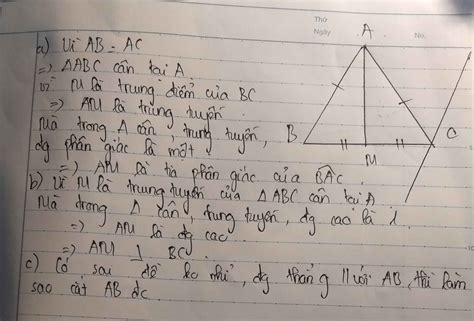 Thứ
Ngày
No.
A
B
M
C
a) Vì AB = AC
=> ΔABC cân tại A
Vì M là trung điểm của BC
=> AM là trung tuyến
Mà trong Δ cân, trung tuyến,
đg phân giác là một
=> AM là tia phân giác của BAC
b) Vì M là trung tuyến của ΔABC cân tại A
Mà trong Δ cân, trung tuyến, đg cao là 1
=> AM là đg cao
=> AM ⊥ BC
c) Có sai đề ko nhỉ, đg thẳng // với AB, thì làm
sao cắt AB đc